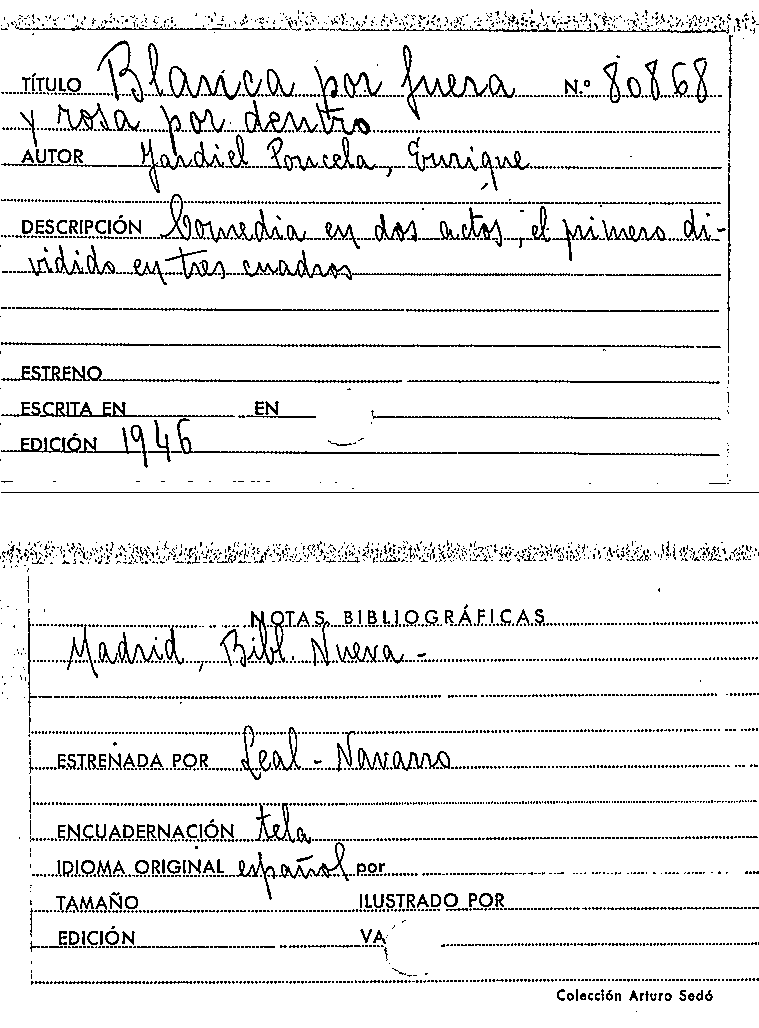 TÍTULO Blanca por fuera N.º 80868
y rosa por dentro
AUTOR Jardiel Poncela, Enrique
DESCRIPCIÓN Comedia en dos actos, el primero di-
vidido en tres cuadros
ESTRENO
ESCRITA EN EN
EDICIÓN 1946
NOTAS BIBLIOGRÁFICAS
Madrid, Bibl. Nueva -
ESTRENADA POR Leal - Navarro
ENCUADERNACIÓN tela
IDIOMA ORIGINAL español por
TAMAÑO ILUSTRADO POR
EDICIÓN VA
Colección Arturo Sedó